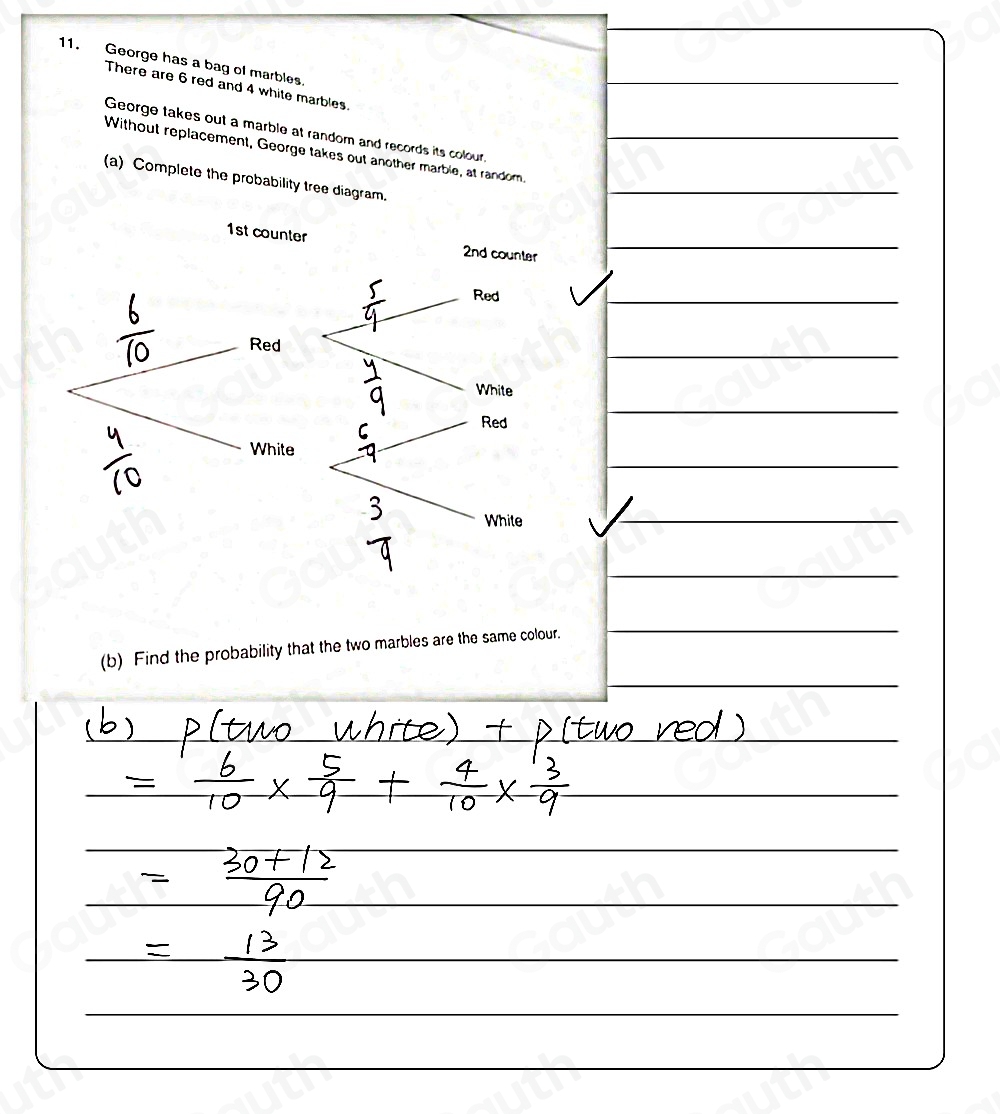 11. George has a bag of marbles.
There are 6 red and 4 white marbles.
George takes out a marble at random and records its colour.
Without replacement, George takes out another marble, at random.
(a) Complete the probability tree diagram.
1st counter
2nd counter
6/10
Red
5/9
Red
4/9
White
4/10
White
6/9
Red
3/9
White
(b) Find the probability that the two marbles are the same colour.
(b) P(two white) + p(two red)
= 6/10 × 5/9 + 4/10 × 3/9
= 30+12/90
= 13/30
Gauth